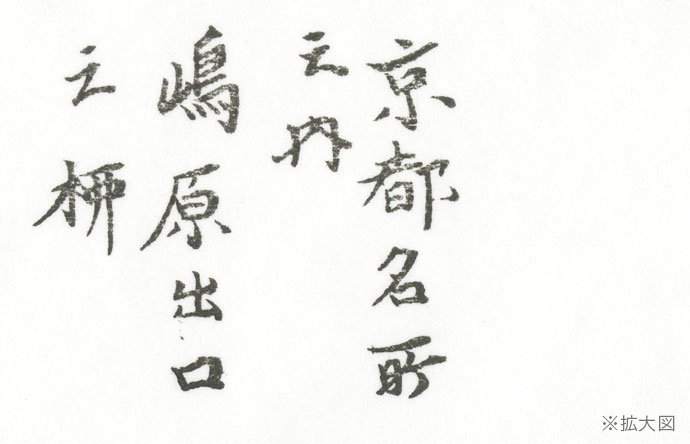 京都名所
之内
嶋原出口
之柳
※拡大図